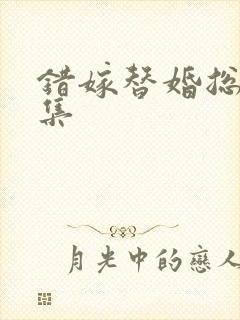 錯嫁替婚総
集
月光中的戀人